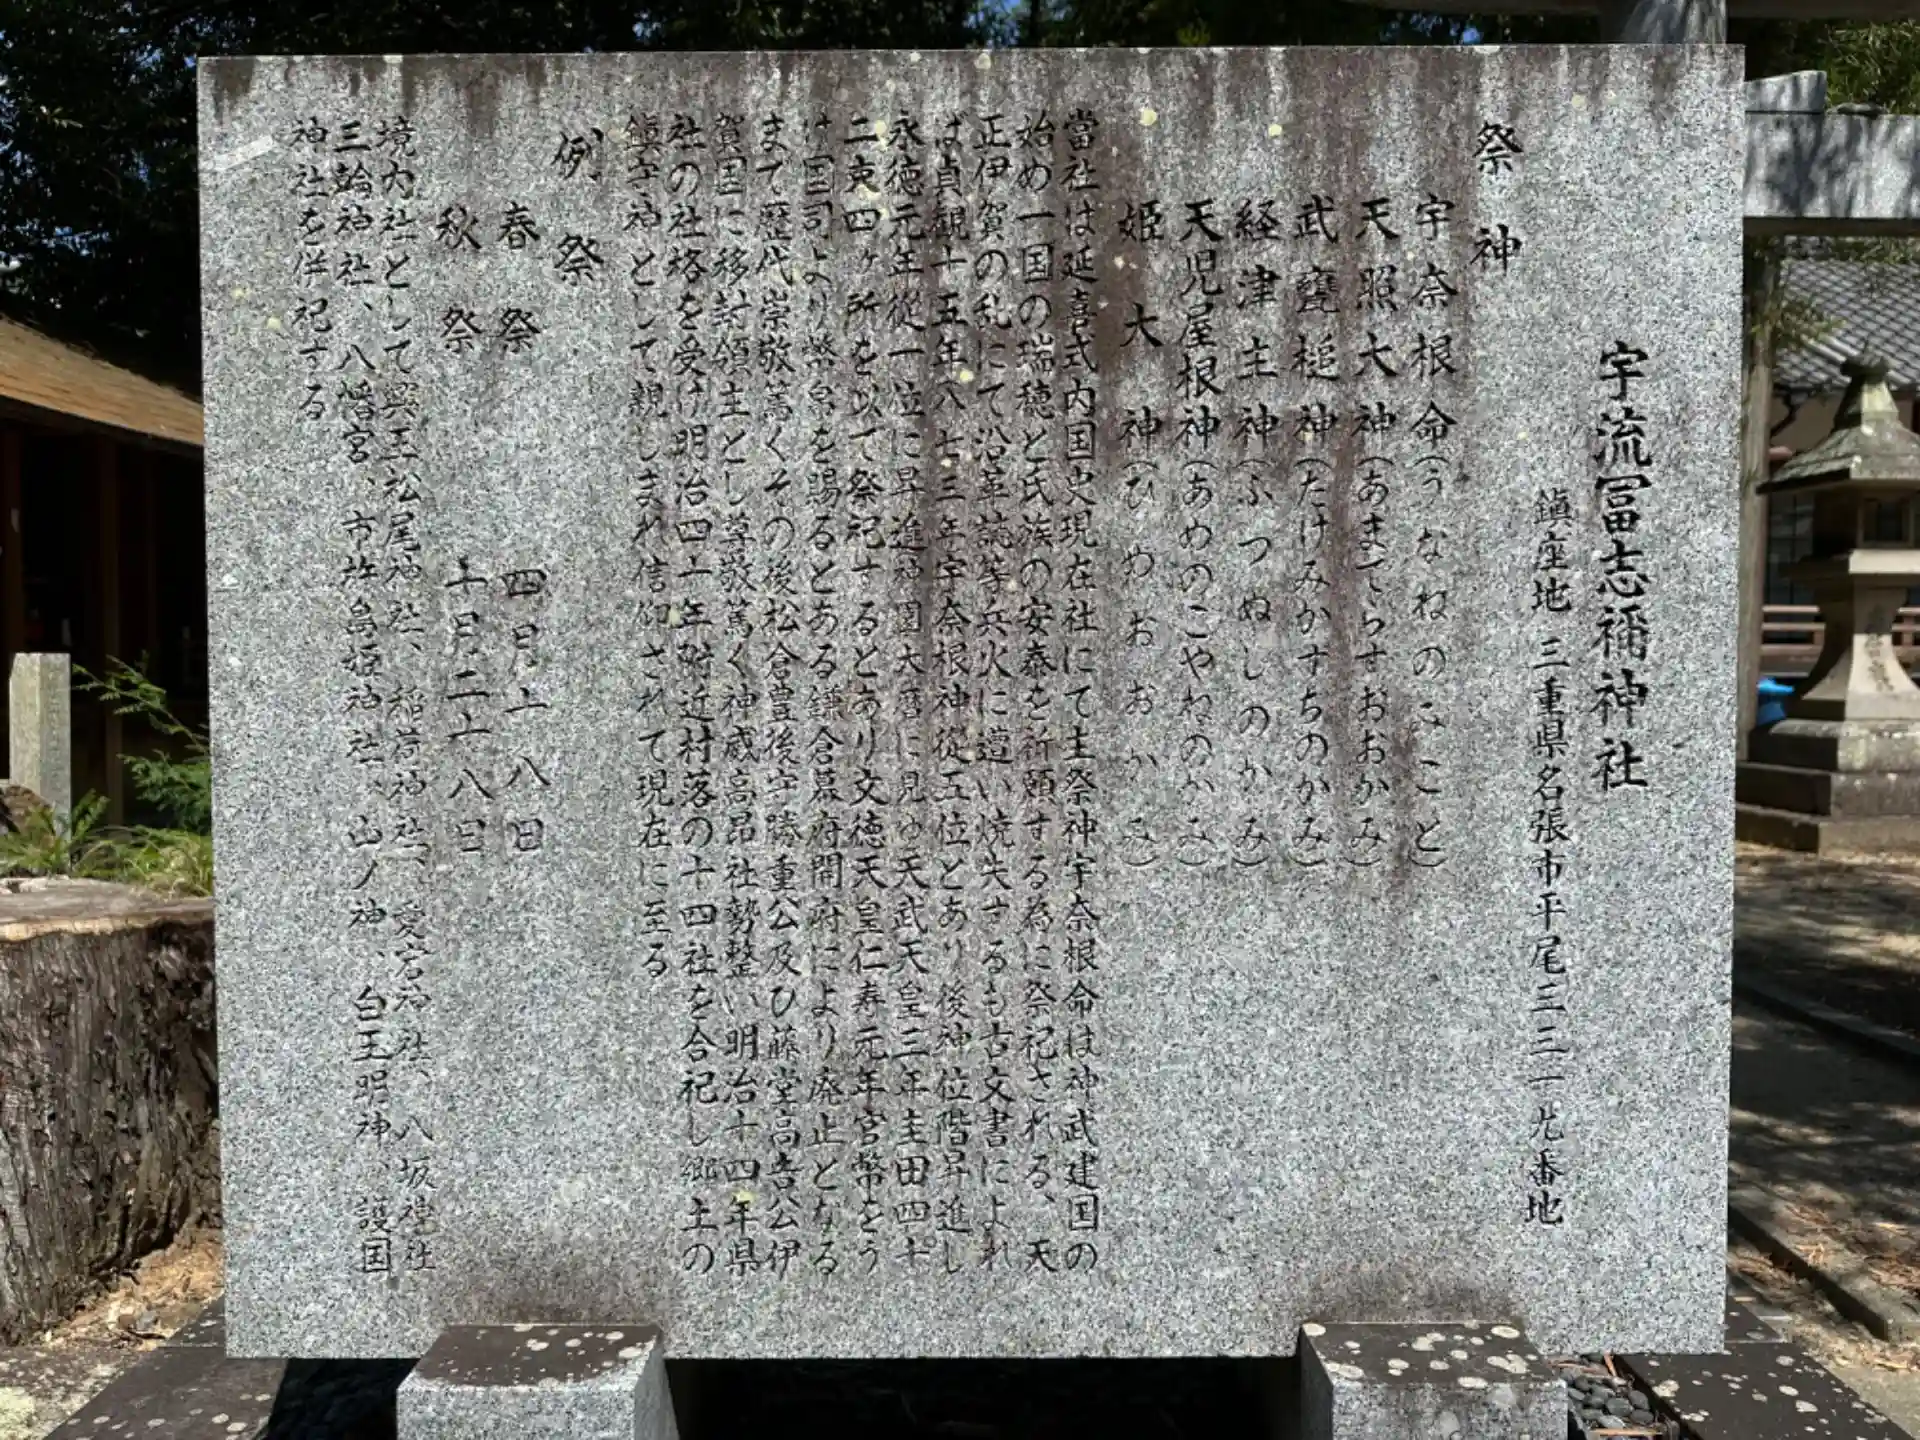 宇流冨志禰神社
鎮座地 三重県名張市平尾三三一九番地
祭神
宇奈根命(うなねのみこと)
天照大神(あまてらすおおかみ)
武甕槌神(たけみかずちのかみ)
経津主神(ふつぬしのかみ)
天児屋根神(あめのこやねのかみ)
姫大神(ひめおおかみ)
當社は延喜式内国史現在社にて主祭神宇奈根命は神武建国の
始め一国の瑞穂と氏族の安泰を祈願する為に祭祀される、天
正伊賀の乱にて沿革誌等兵火に遭い焼失するも古文書によれ
ば貞観十五年八七三年宇奈根神従五位とあり後神位階昇進し
永徳元年従一位に昇進神園大暦に見ゆ天武天皇三年圭田四十
二束四ヶ所を以て祭祀するとあり文徳天皇仁寿元年官幣をう
け国司より幣帛を賜るとある鎌倉幕府開府により廃止となる
まで歴代崇敬篤くその後松倉豊後守勝重公及び藤堂高吉公伊
賀国に移封領主とし尊敬篤く神威高昂社勢整い明治十四年県
社の社格を受け明治四十一年附近村落の十四社を合祀し郷土の
鎮守神として親しまれ信仰されて現在に至る
例祭
春祭 四月十八日
秋祭 十月二十八日
境内社として興玉松尾神社、稲荷神社、愛宕神社、八坂神社
三輪神社、八幡宮、市杵島姫神社、山ノ神、白玉明神、護国
神社を併祀する